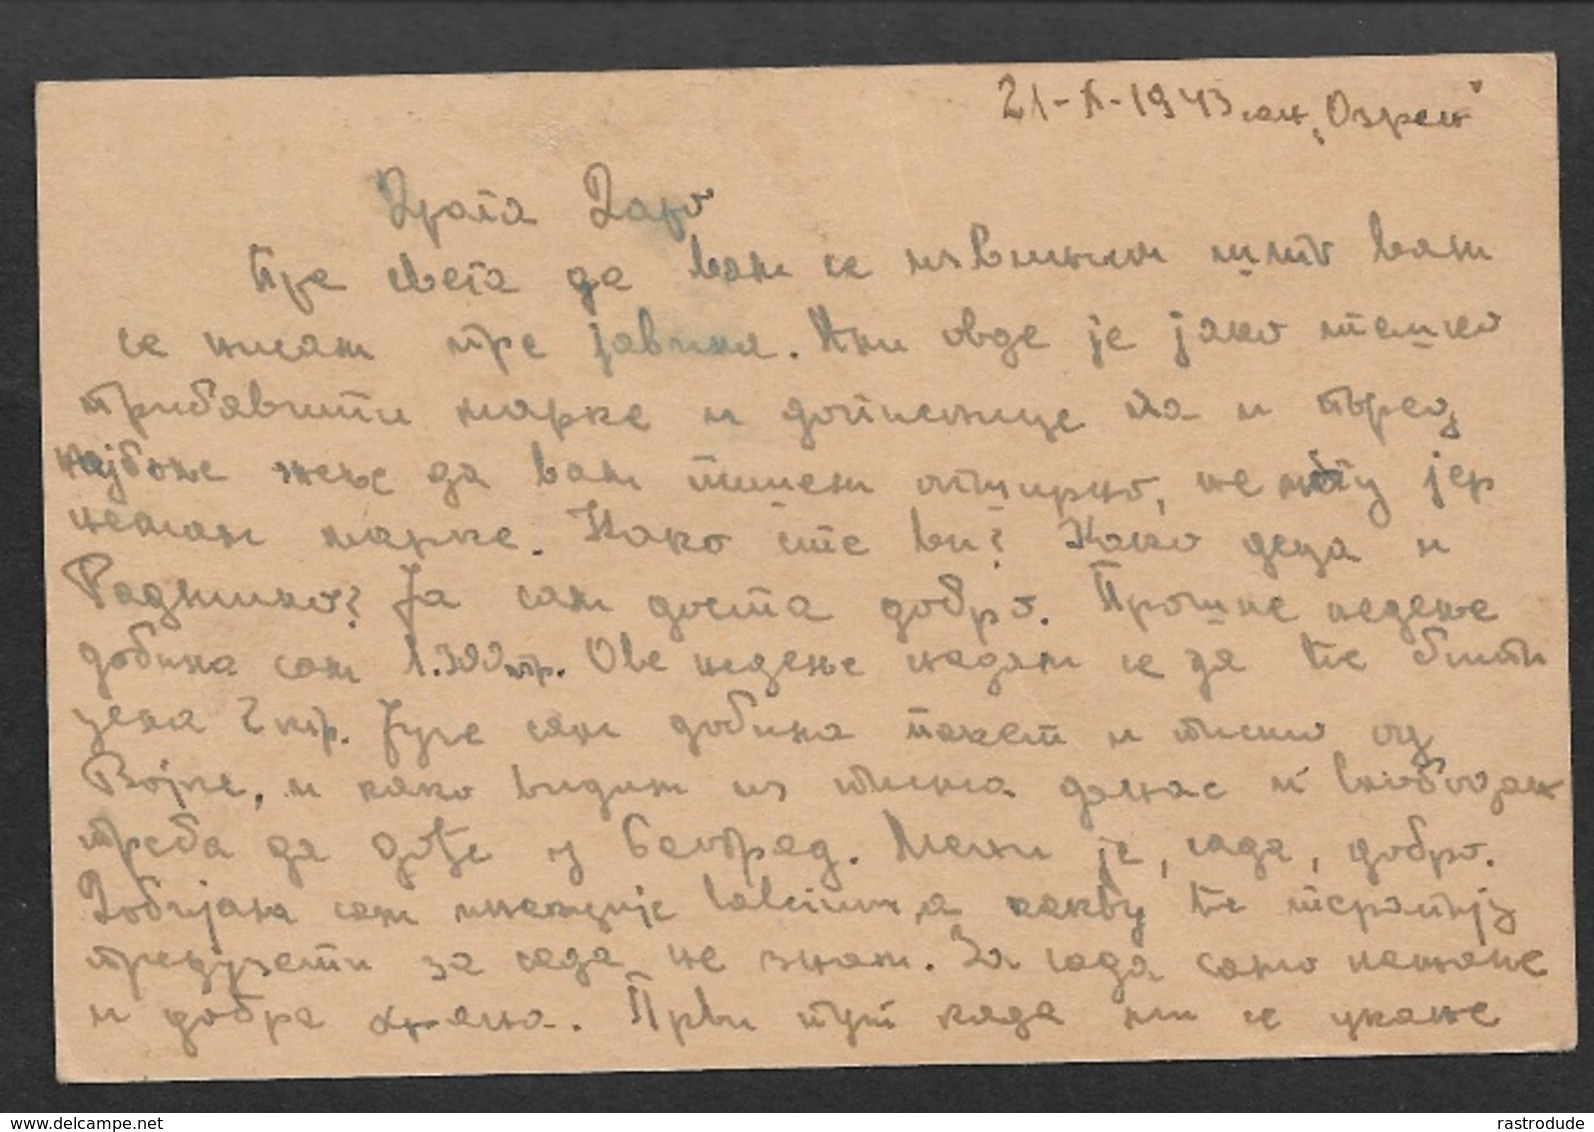 21-X-1943 сан. „Озрен"
Драга Даро
Пре свега да вам се извиним што вам
се нисам пре јавила. Али овде је јако тешко
прибавити марке и дописнице па и поред
најбоље жеље да вам пишем опширно, не могу јер
немам марке. Како сте ви? Како деца и
Радмило? Ја сам доста добро. Прошле недеље
добила сам 1.300 гр. Ове недеље надам се да ће бити
цела 2 кгр. Јуче сам добила пакет и писмо од
Војке, и како видим из писма данас и Слободан
треба да дође у Београд. Мени је, сада, добро.
Добијам сам инекције calcium, а какву ће терапију
предузети за сада не знам. За сада само лежање
и добра храна. Први пут када ми се укаже
www.delcampe.net
rastrodude